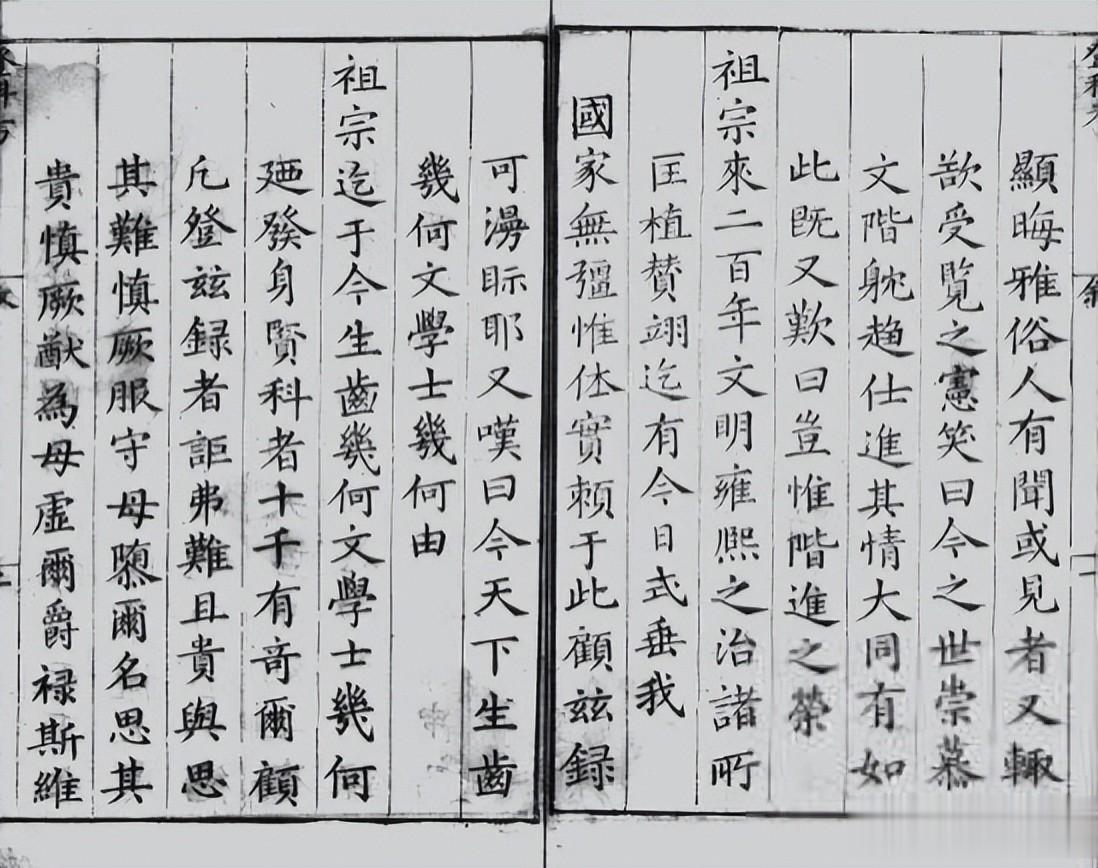 顯晦雅俗人有聞或見者又輙
歆受覽之憲笑曰今之世崇慕
文階躭趨仕進其情大同有如
此既又歎曰豈惟階進之榮
祖宗來二百年文明雍熙之治諸所
匡植賛翊迄有今日式垂我
國家無彊惟休實頼于此顧兹録
可漫眎耶又嘆曰今天下生齒
幾何文學士幾何由
祖宗迄于今生齒幾何文學士幾何
廼發身賢科者十千有奇爾顧
凡登兹録者詎弗難且貴與思
其難慎厥服守毋隳爾名思其
貴慎厥猷為毋虛爾爵禄斯維